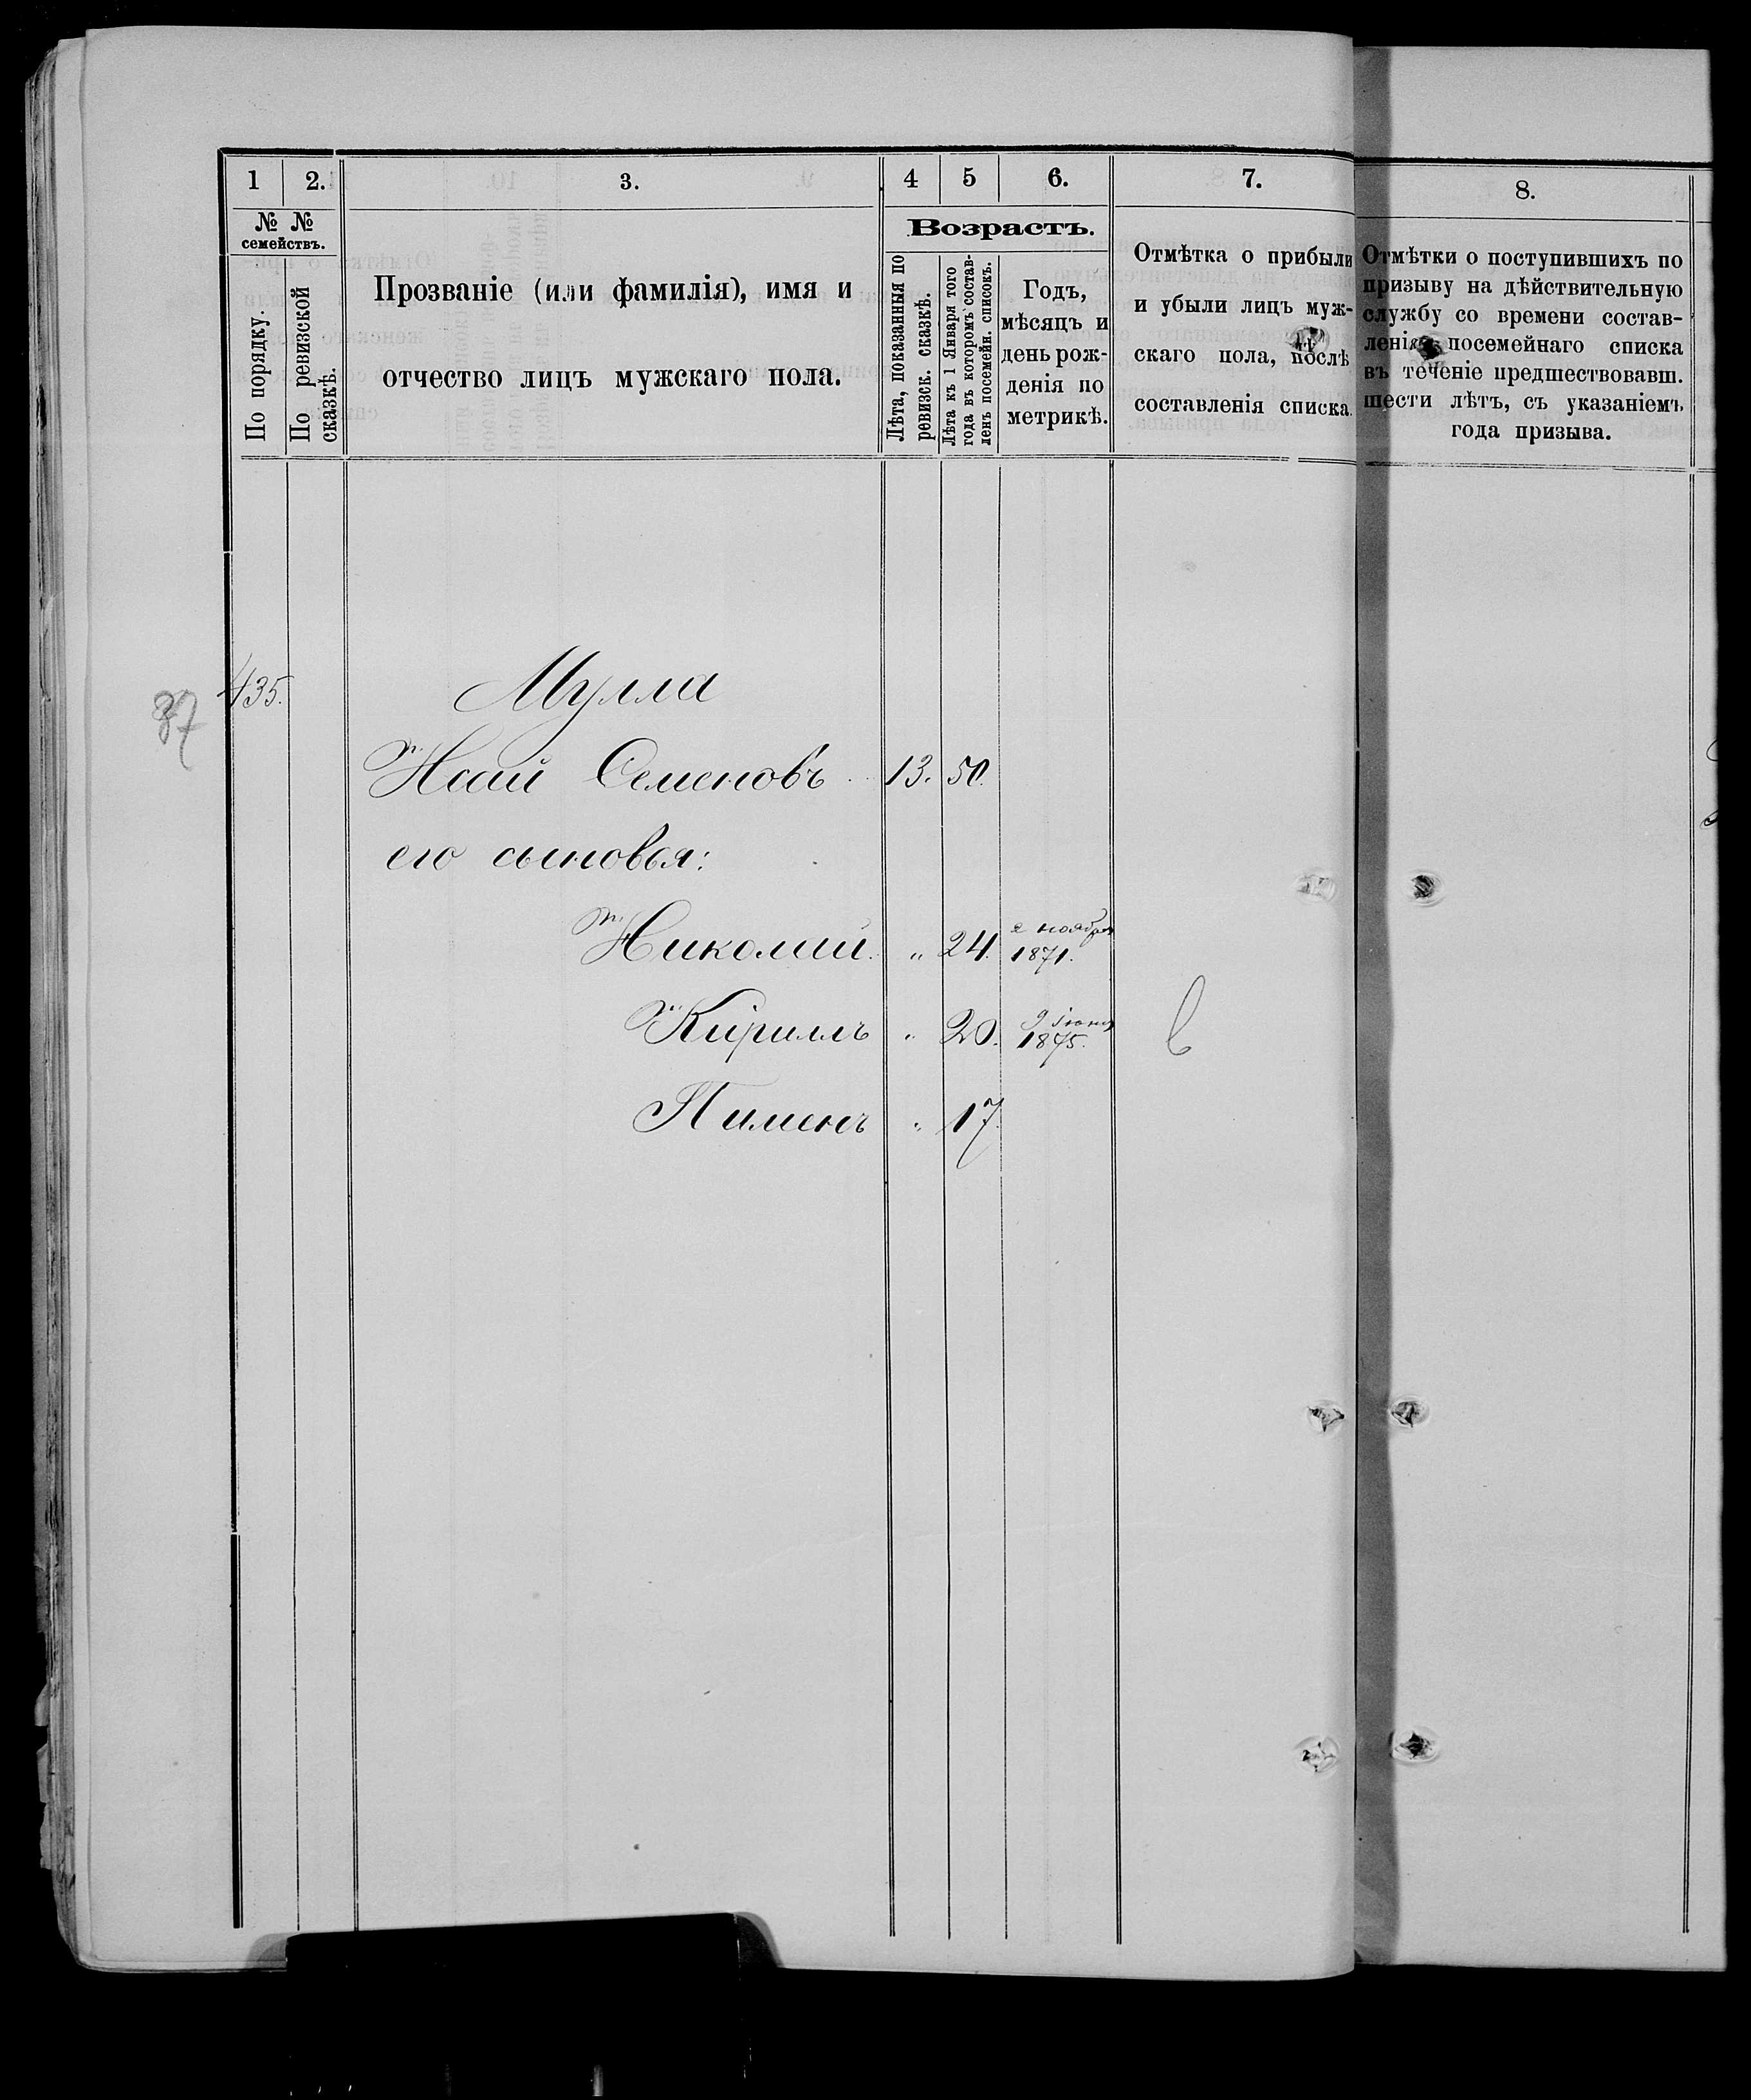 1 2. 3. 4 5 6. 7. 8.
№ № семействъ.
По порядку.
По ревизской сказкѣ.
Прозваніе (или фамилія), имя и
отчество лицъ мужскаго пола.
Возрастъ.
Лѣта, показанныя по
ревизск. сказкѣ.
Лѣта къ 1 Января того
года въ которомъ состав-
ленъ посемейн. списокъ.
Годъ,
мѣсяцъ и
день рож-
денія по
метрикѣ.
Отмѣтка о прибыли
и убыли лицъ муж-
скаго пола, послѣ
составленія списка.
Отмѣтки о поступившихъ по
призыву на дѣйствительную
службу со времени состав-
ленія посемейнаго списка
въ теченіе предшествовавш.
шести лѣтъ, съ указаніемъ
года призыва.
435. Мулла
37
Исай Семеновъ 13. 50.
его сыновья:
Николай. " 24. 2 ноября 1871.
Кирилъ " 20. 9 іюня 1875.
Пименъ " 17.